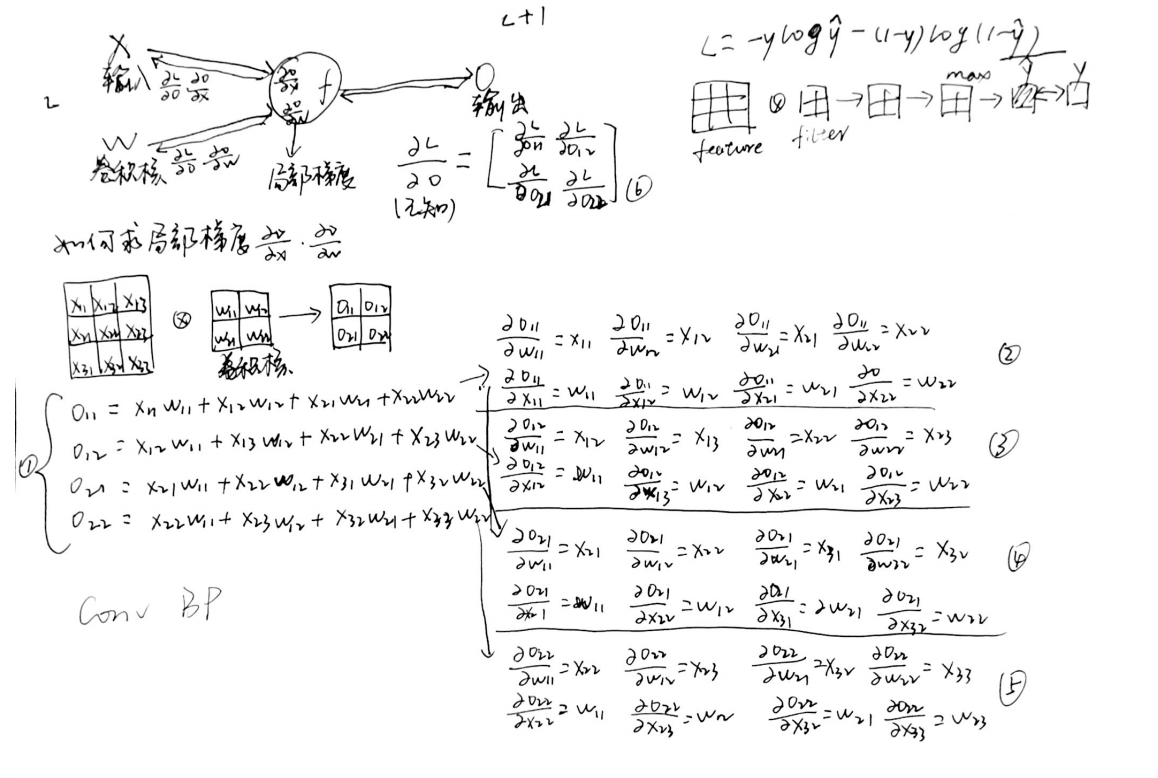 L+1
L = -y log ŷ - (1-y) log (1-ŷ)
X
输入 ∂L/∂O ∂O/∂X
∂O/∂X
∂O/∂W
f
O
输出
L
W
卷积核 ∂L/∂O ∂O/∂W
局部梯度
∂L/∂O = [∂L/∂O11 ∂L/∂O12
∂L/∂O21 ∂L/∂O22] ⑥
(已知)
max ŷ y
feature ⊗ filter
如何求局部梯度 ∂O/∂X · ∂O/∂W
X11 X12 X13
X21 X22 X23
X31 X32 X33
⊗
W11 W12
W21 W22
卷积核
O11 O12
O21 O22
①
O11 = X11W11 + X12W12 + X21W21 + X22W22
O12 = X12W11 + X13W12 + X22W21 + X23W22
O21 = X21W11 + X22W12 + X31W21 + X32W22
O22 = X22W11 + X23W12 + X32W21 + X33W22
Conv BP
∂O11/∂W11 = X11 ∂O11/∂W12 = X12 ∂O11/∂W21 = X21 ∂O11/∂W22 = X22 ②
∂O11/∂X11 = W11 ∂O11/∂X12 = W12 ∂O11/∂X21 = W21 ∂O/∂X22 = W22
∂O12/∂W11 = X12 ∂O12/∂W12 = X13 ∂O12/∂W21 = X22 ∂O12/∂W22 = X23 ③
∂O12/∂X12 = W11 ∂O12/∂X13 = W12 ∂O12/∂X22 = W21 ∂O12/∂X23 = W22
∂O21/∂W11 = X21 ∂O21/∂W12 = X22 ∂O21/∂W21 = X31 ∂O21/∂W22 = X32 ④
∂O21/∂X21 = W11 ∂O21/∂X22 = W12 ∂O21/∂X31 = ∂W21 ∂O21/∂X32 = W22
∂O22/∂W11 = X22 ∂O22/∂W12 = X23 ∂O22/∂W21 = X32 ∂O22/∂W22 = X33 ⑤
∂O22/∂X22 = W11 ∂O22/∂X23 = W12 ∂O22/∂X32 = W21 ∂O22/∂X33 = W23